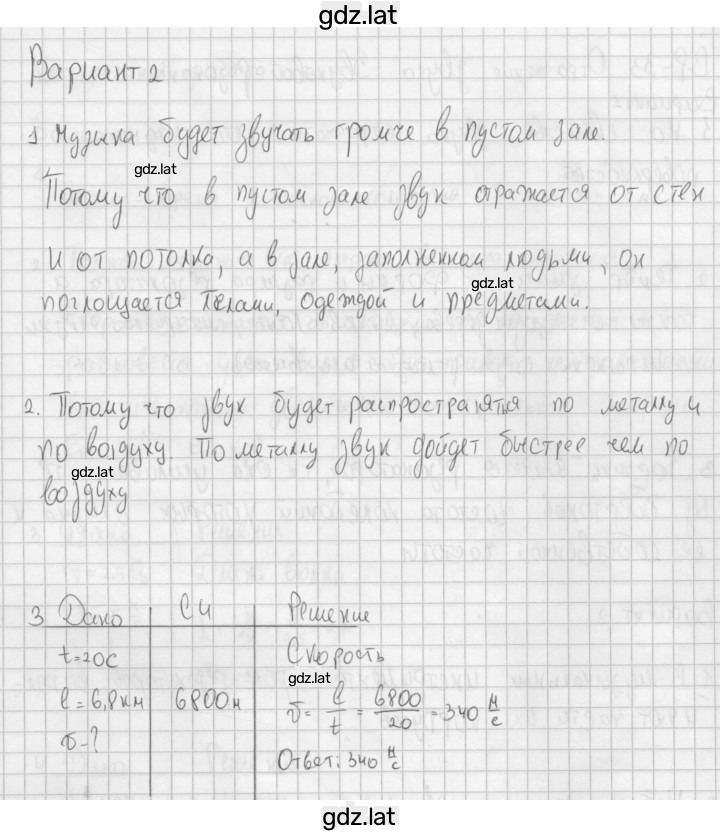 gdz.lat
Вариант 2
1 Музыка будет звучать громче в пустом зале.
gdz.lat
Потому что в пустом зале звук отражается от стен
и от потолка, а в зале, заполненном людьми, он
gdz.lat
поглощается телами, одеждой и предметами.
2. Потому что звук будет распространятся по металлу и
по воздуху. По металлу звук дойдет быстрее чем по
gdz.lat
воздуху
3 Дано СИ Решение
t=20с Скорость
gdz.lat
l=6,8км 6800м v= l/t = 6800/20 =340 м/с
v-?
Ответ: 340 м/с
gdz.lat